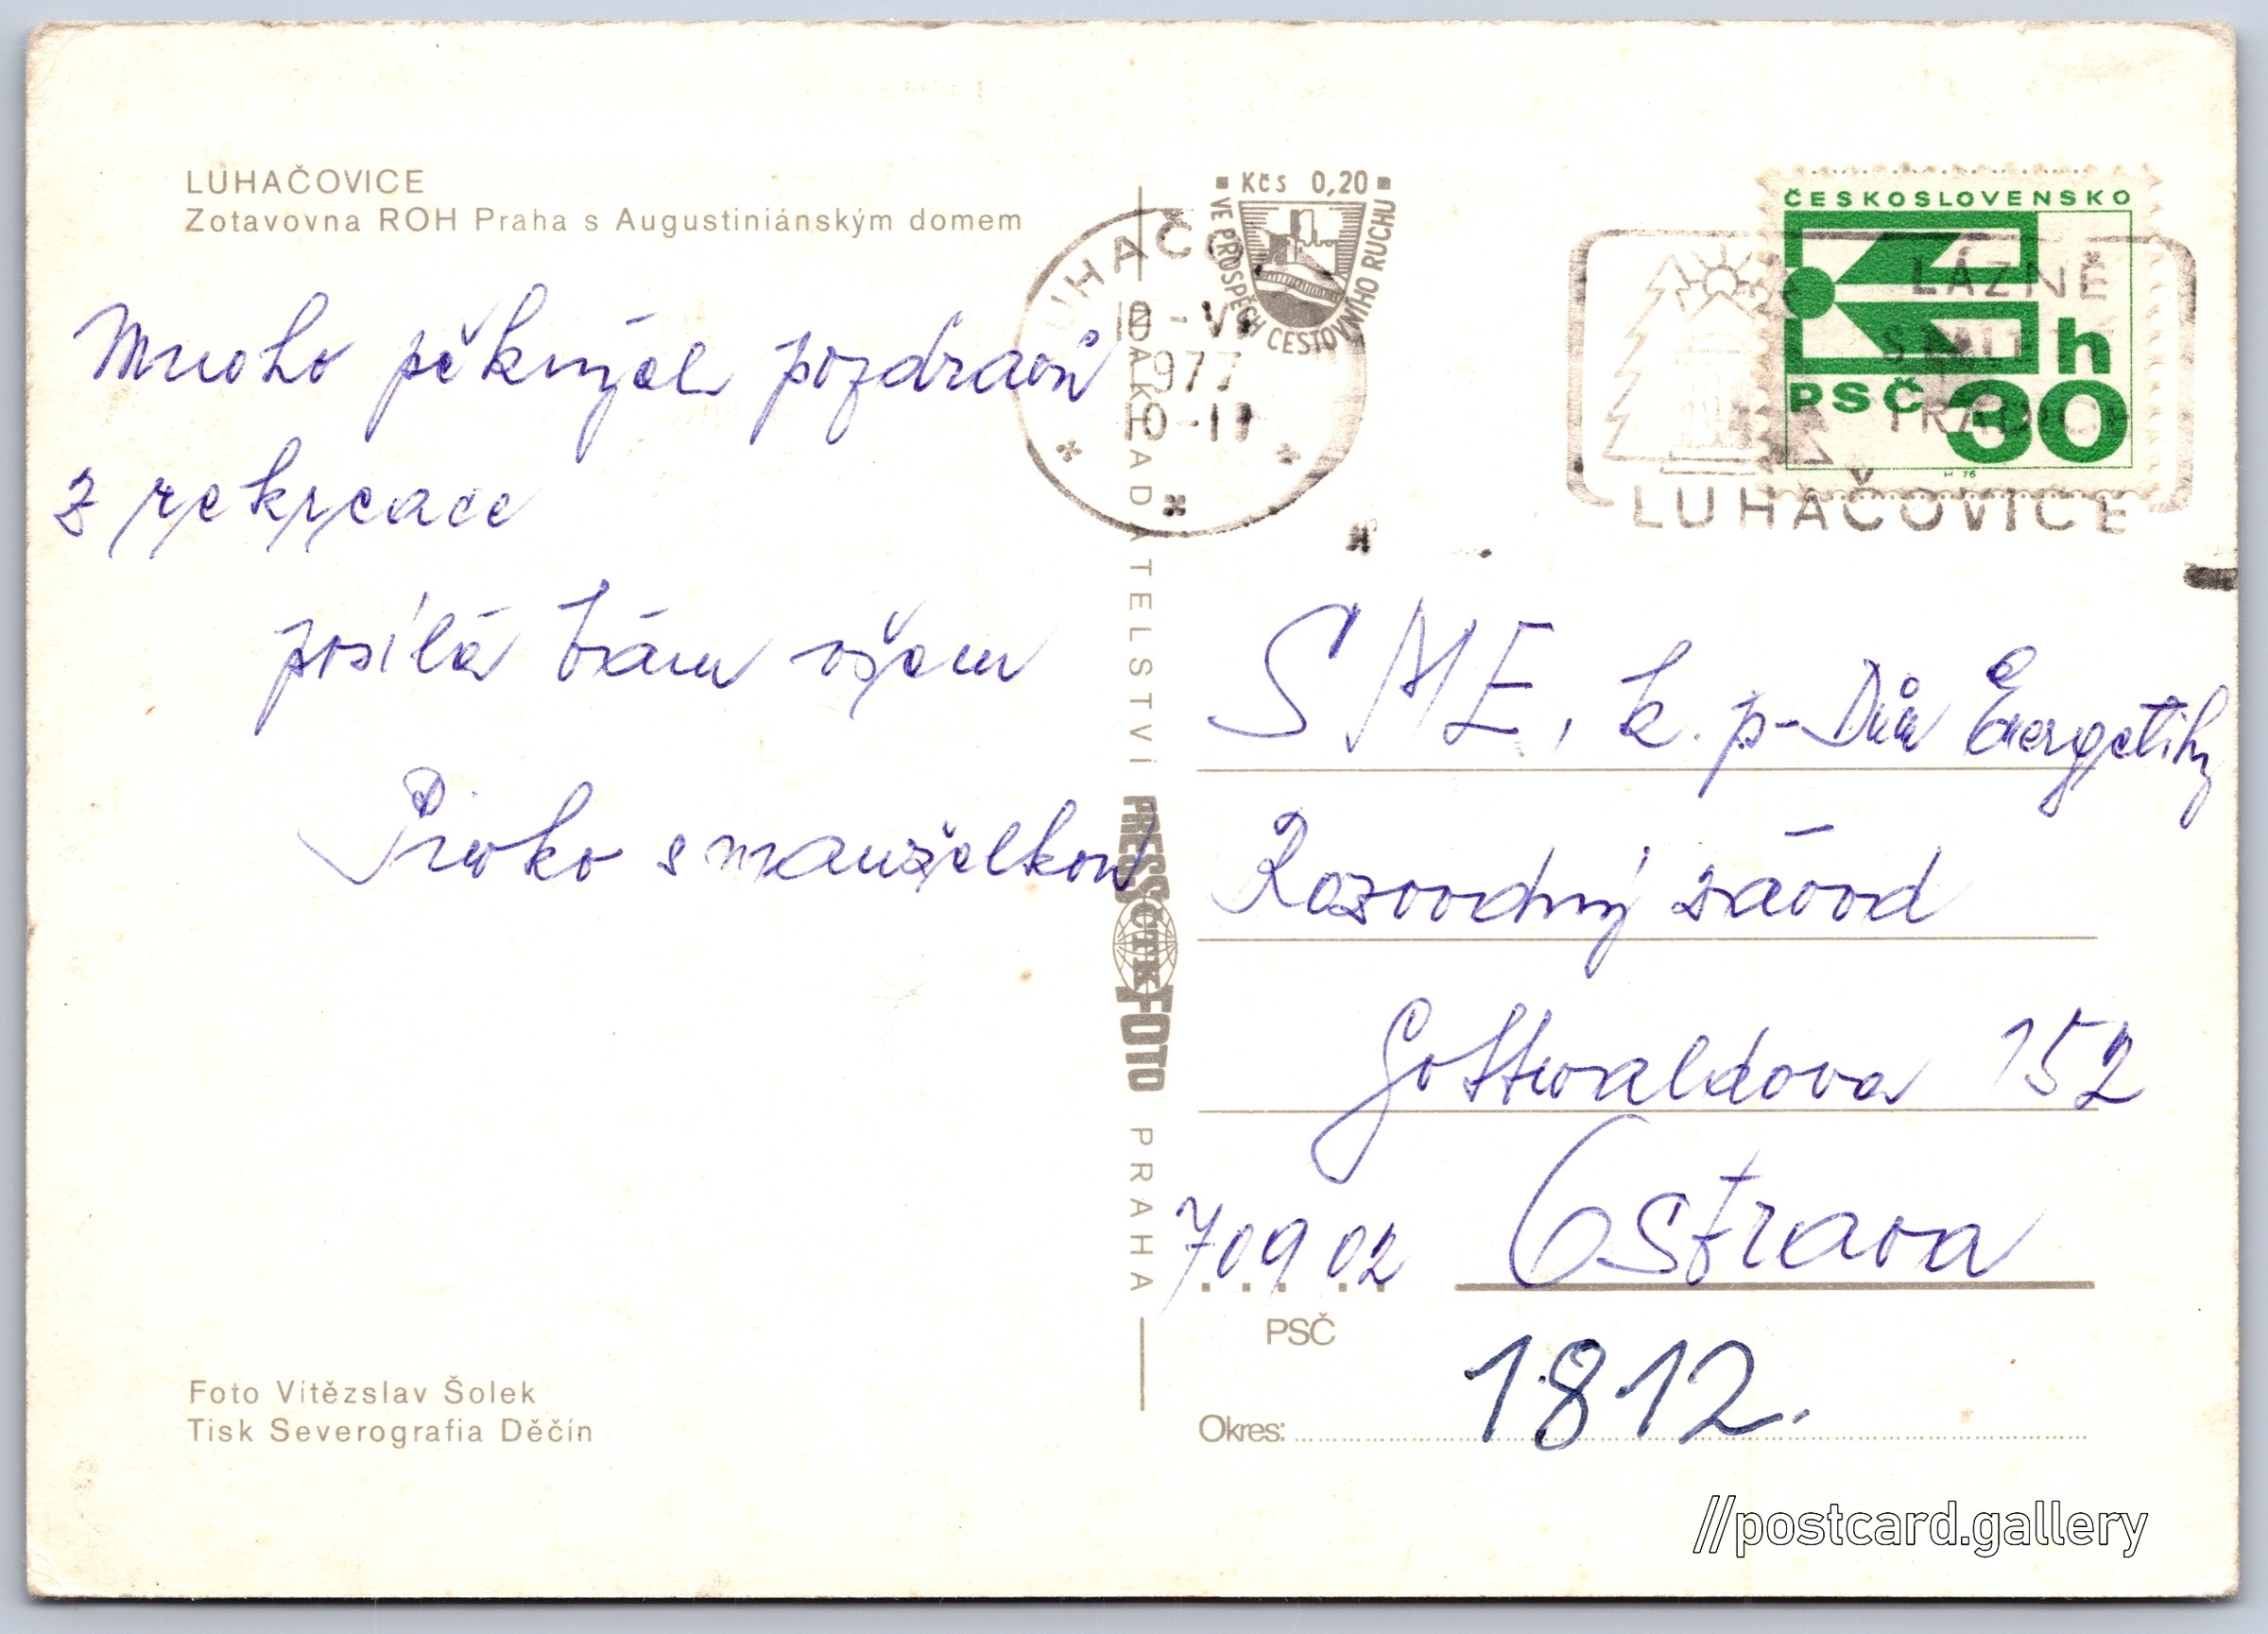 LUHAČOVICE
Zotavovna ROH Praha s Augustiniánským domem
Mnoho pěkných pozdravů
z rekreace
posílá Vám všem
s manželkou
Foto Vítězslav Šolek
Tisk Severografia Děčín
NAKLADATELSTVÍ PRESSFOTO PRAHA
ČTK
Kčs 0,20
VE PROSPĚCH CESTOVNÍHO RUCHU
LUHAČO
-VI
977
ČESKOSLOVENSKO
h
PSČ 30
LÁZNĚ
LUHAČOVICE
SME, k. p - Dům Energetiky
Rozvodný závod
Gottwaldova 152
709 02 Ostrava
PSČ
Okres: 1812.
//postcard.gallery